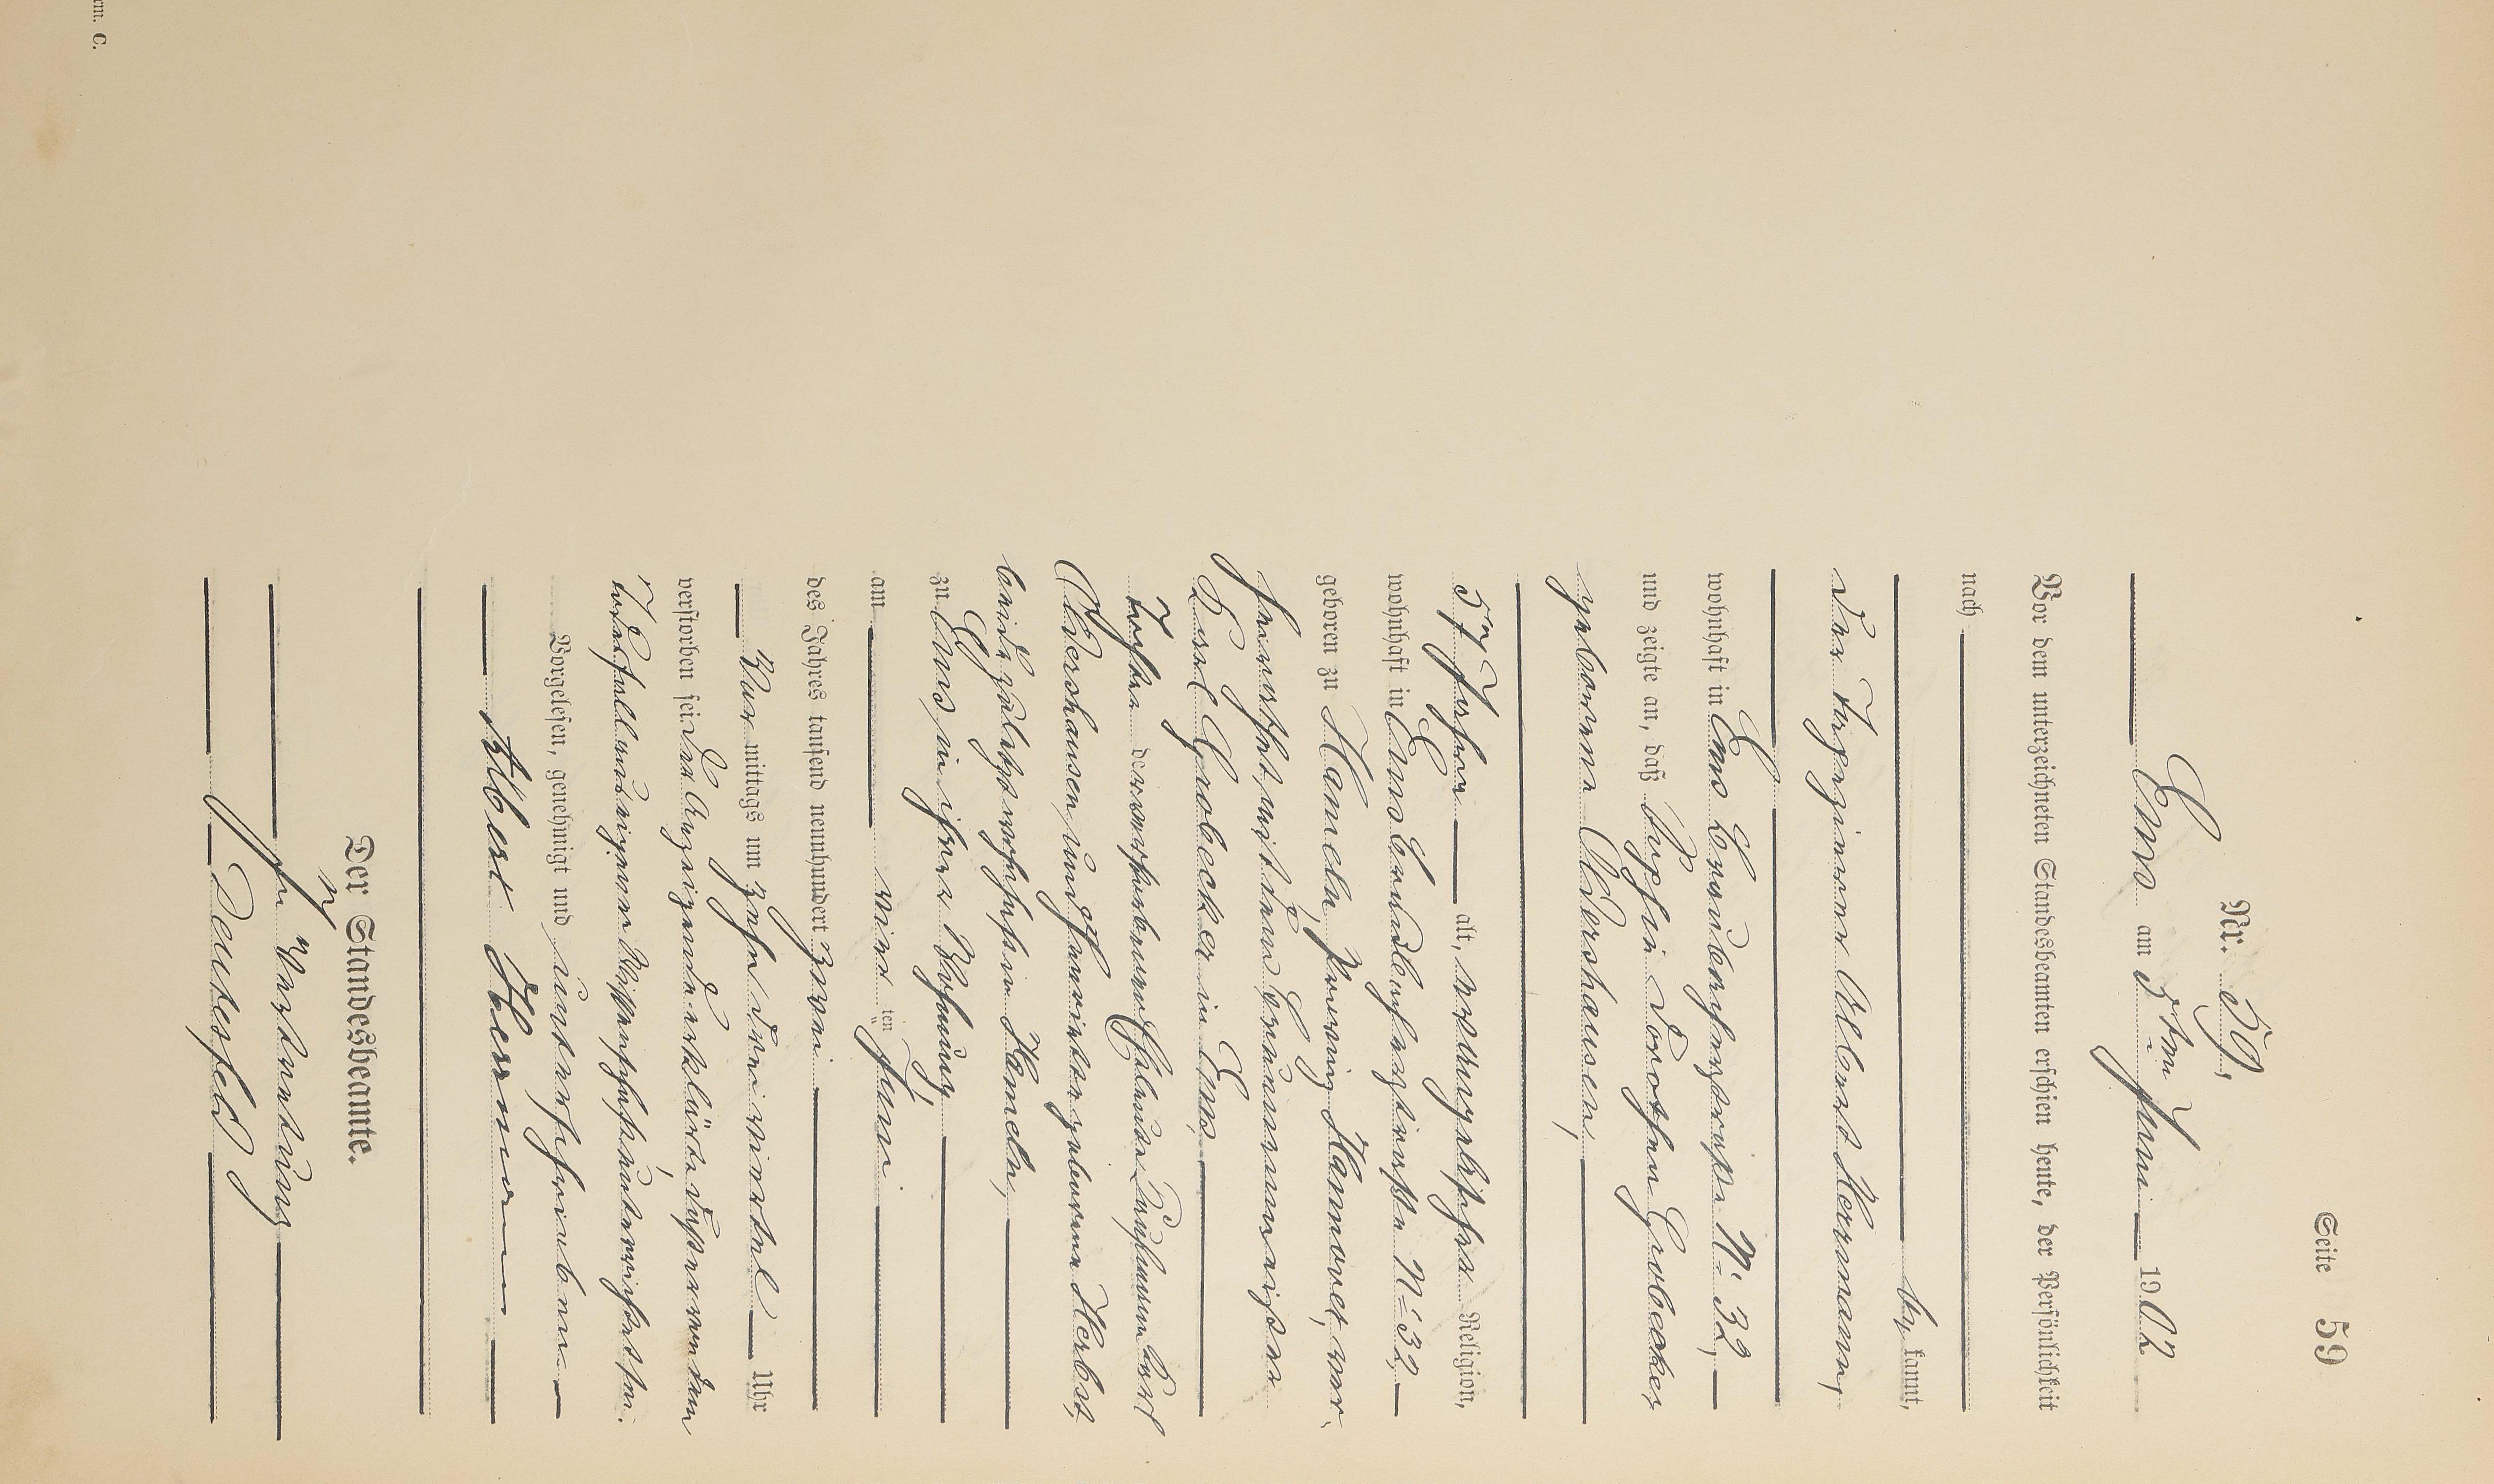 Seite 59
Nr. 59,
Ems am 5ten Juni 1902
Vor dem unterzeichneten Standesbeamten erschien heute, der Persönlichkeit
nach
be kannt,
der Tapezierer Albert Hermann,
wohnhaft in Ems Grabenstraße N: 32,
und zeigte an, daß Sophie Dorothea Grobecker
geborene Oldershausen,
57 Jahre alt, evangelischer Religion,
wohnhaft in Ems N: 32
geboren zu Hameln, Provinz Hannover, ver-
heirathet mit dem
Carl Grobecker in Ems,
Tochter der verstorbenen Eheleute Carl
Oldershausen und Henriette geborene Herbst,
beide zuletzt wohnhaft in Hameln,
zu Ems, in ihrer Wohnung,
am vierten Juni
des Jahres tausend neunhundert zwei
Vor mittags um zehn drei viertel Uhr
verstorben sei. Der Anzeigende erklärte, daß er von dem
Todesfall aus eigener Wissenschaft unterrichtet sei.
Vorgelesen, genehmigt und unterschrieben
Albert Hermann
Der Standesbeamte.
In Vertretung
rm. C.